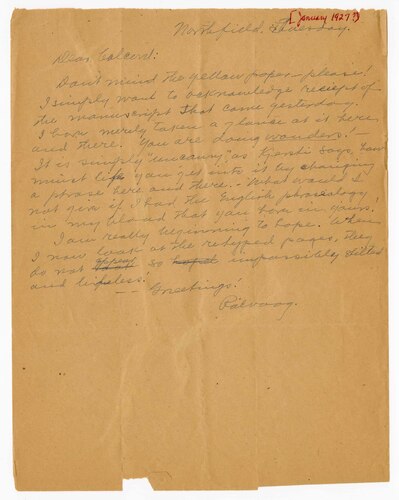 [January 1927?]
Northfield, Thursday.
Dear Colcord:
Don't mind the yellow paper please!
I simply want to acknowledge reciept of
the manuscript that came yesterday.
I have merely taken a glance at it here
and there. You are doing wonders! –
It is simply "uncanny," as Gjersti says, how
much life you get into it by changing
a phrase here and there. – What would I
not give if I had the English phraseology
in my blood that you have in yours!
I am really beginning to hope. When
I now look at the retyped pages, they
do not appear so impossibly stilted
and lifeless!
– – Greetings!
Rölvaag.